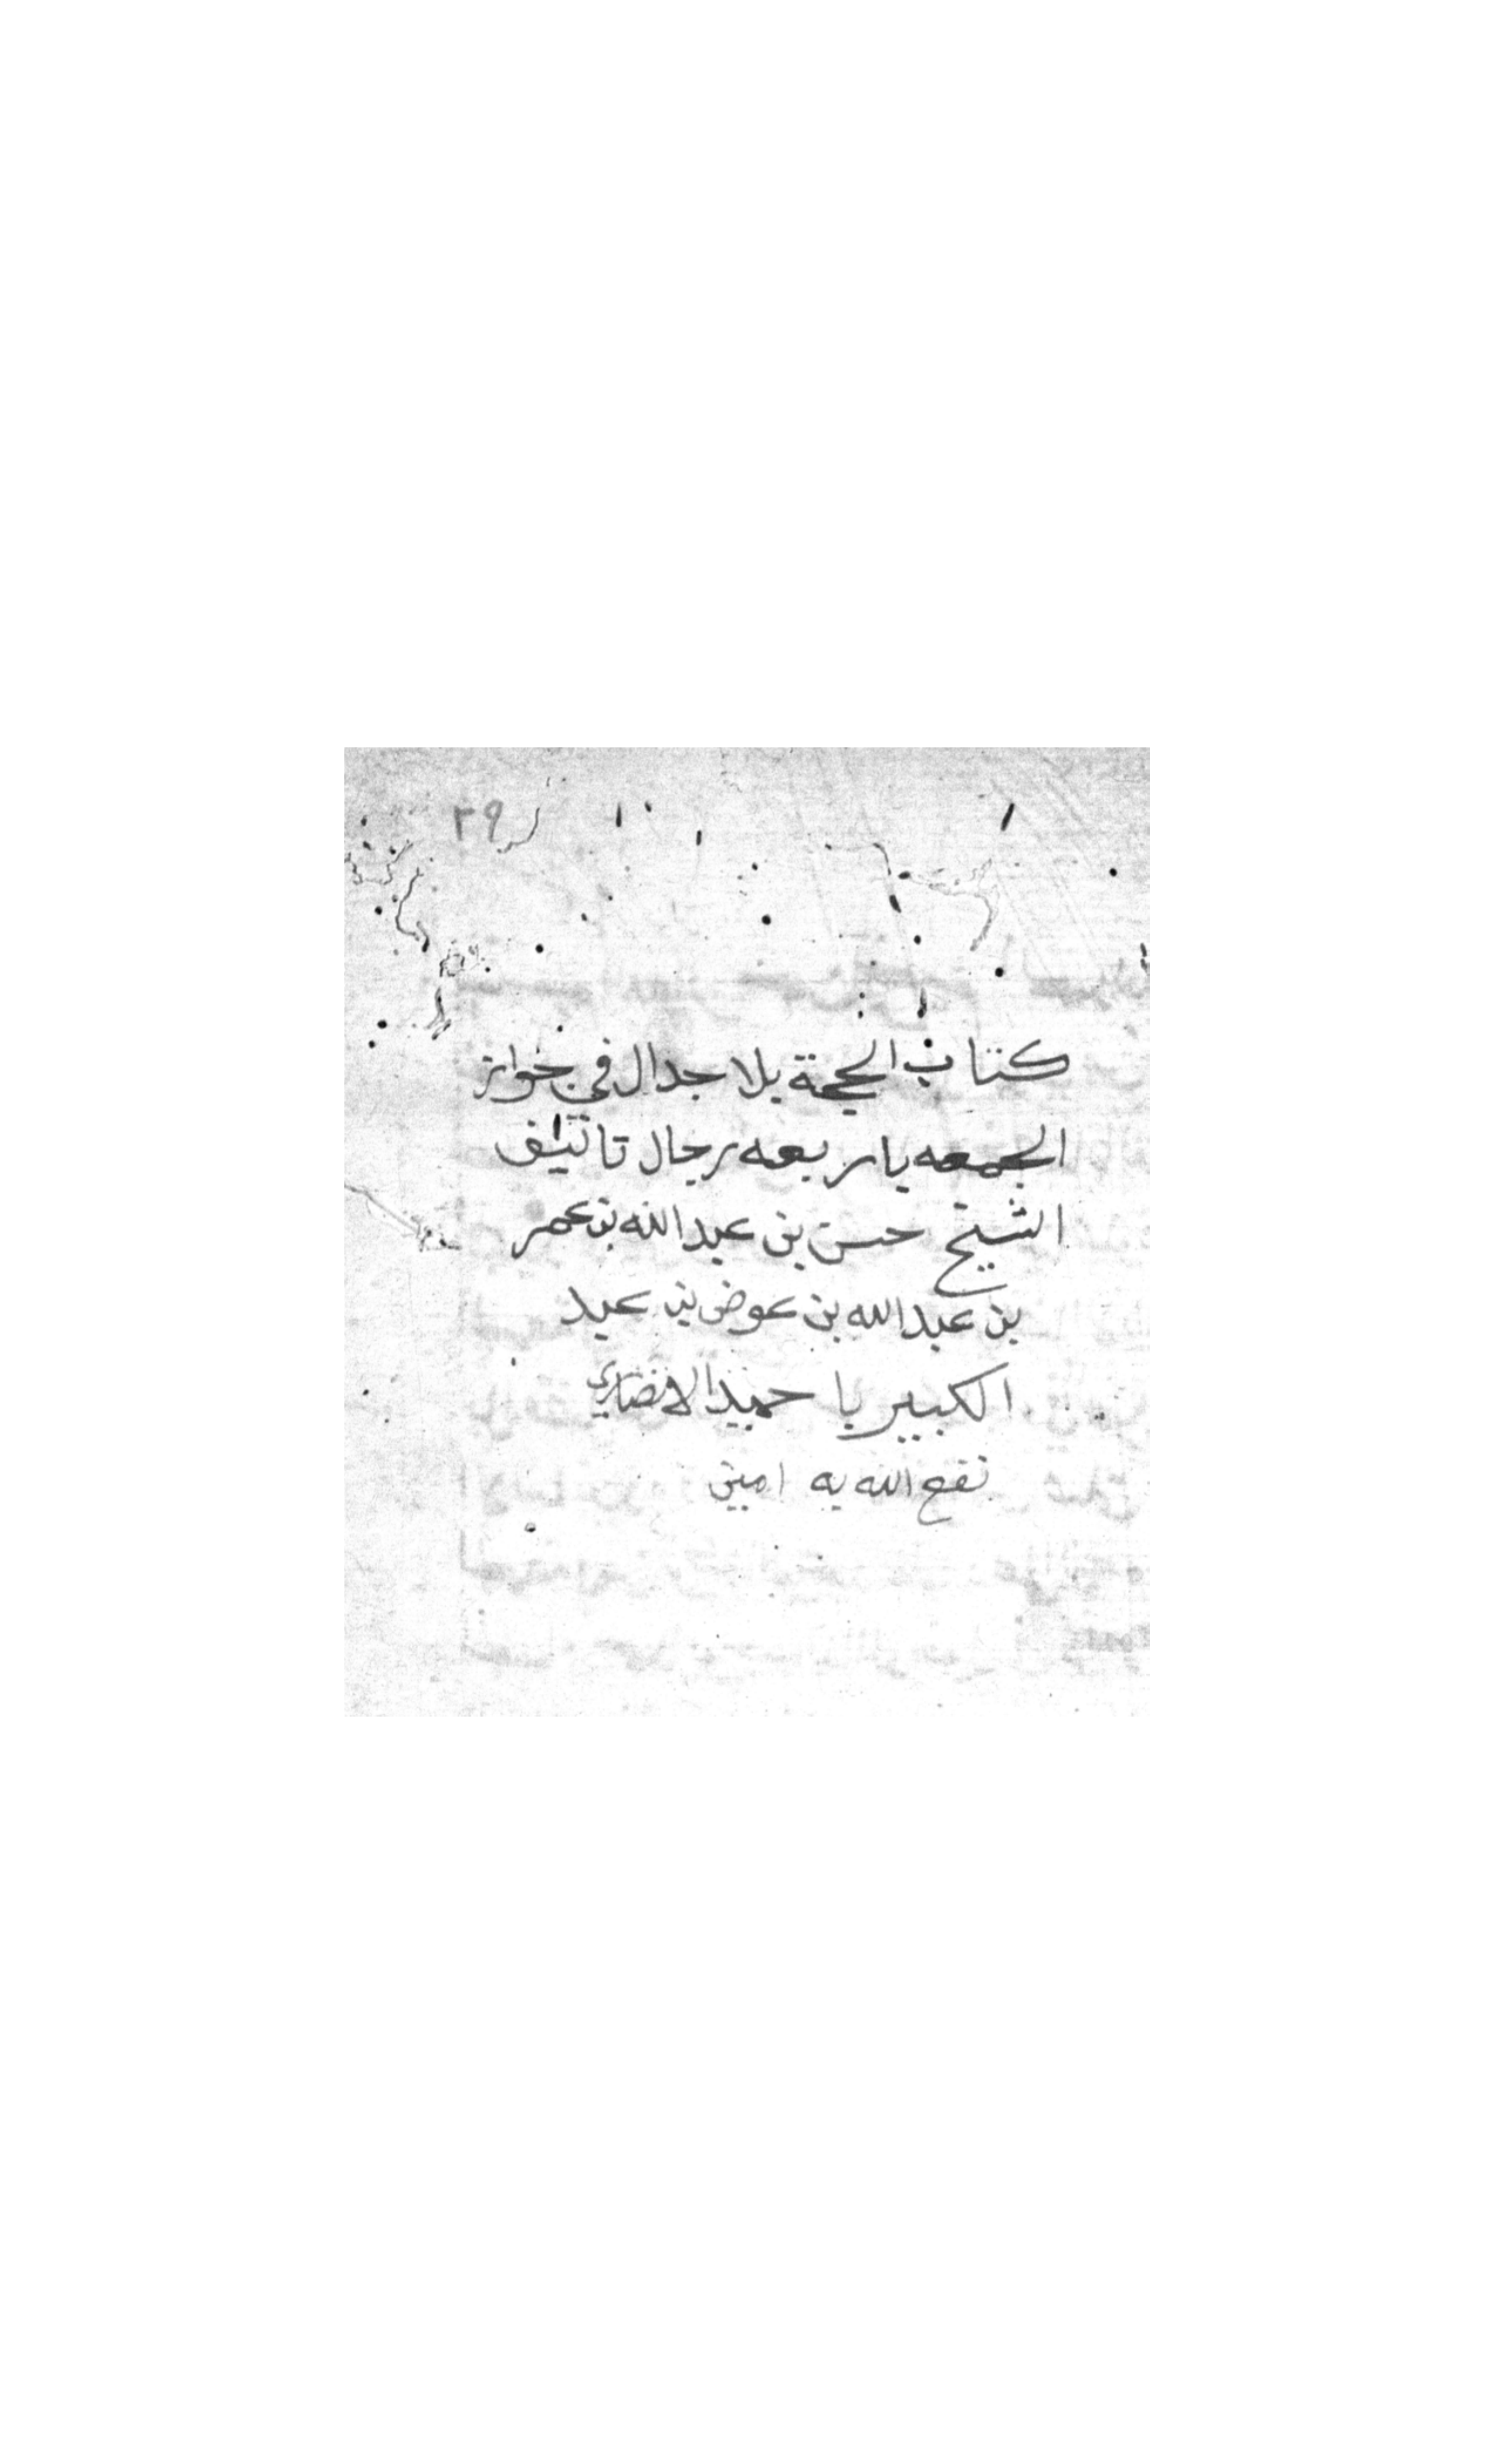 ٣٩
كتاب الحجة بلا جدال في جواز
الجمعه باربعه رجال تاليف
الشيخ حسن بن عبد الله بن عمر
بن عبد الله بن عوض بن عبد
الكبير با حميد الانصاري
نفع الله به امين